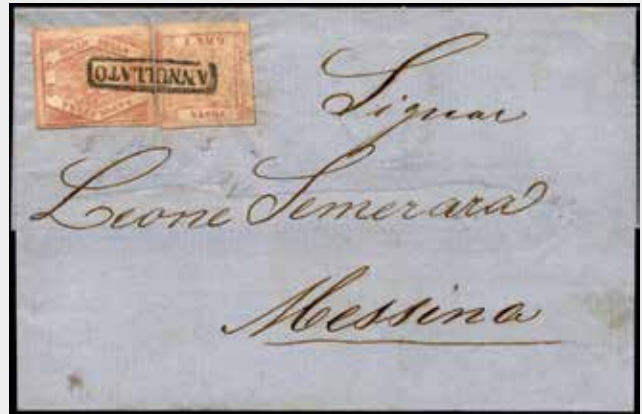 ANNULLATO
Signor
Leone Semerara
Messina